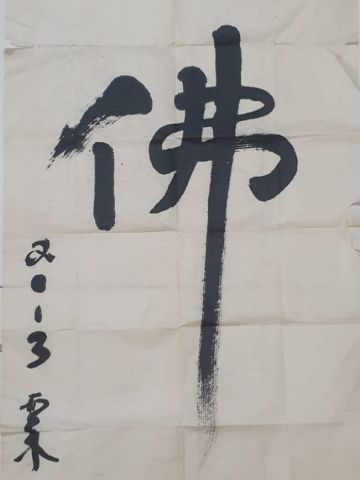 佛
2013